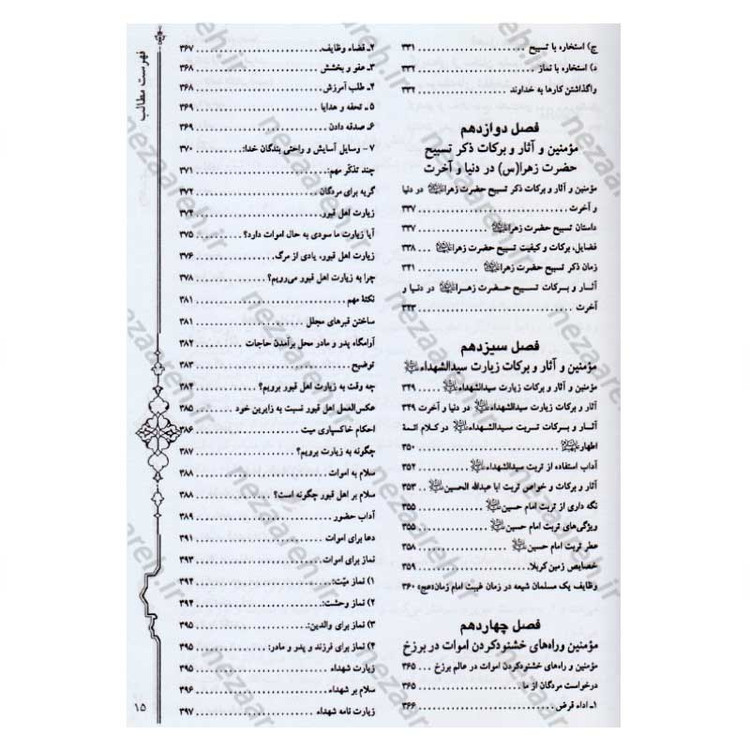 ج) استخاره با تسبیح ............ ۳۳۱
د) استخاره با نماز ............ ۳۳۲
واگذاشتن کارها به خداوند ............ ۳۳۲
فصل دوازدهم
مؤمنین و آثار و برکات ذکر تسبیح
حضرت زهرا(س) در دنیا و آخرت
مؤمنین و آثار و برکات ذکر تسبیح حضرت زهرا در دنیا
و آخرت ............ ۳۳۷
داستان تسبیح حضرت زهرا ............ ۳۳۷
فضایل، برکات و کیفیت تسبیح حضرت زهرا ۳۳۸
زمان ذکر تسبیح حضرت زهرا ............ ۳۴۱
آثار و برکات تسبیح حضرت زهرا در دنیا و
آخرت ............ ۳۴۳
فصل سیزدهم
مؤمنین و آثار و برکات زیارت سیدالشهداء
مؤمنین و آثار و برکات زیارت سیدالشهداء ... ۳۴۹
آثار و برکات زیارت سیدالشهداء در دنیا و آخرت ۳۴۹
آثار و برکات تربت سیدالشهداء در کلام ائمهٔ
اطهار ............ ۳۵۰
آداب استفاده از تربت سیدالشهداء ............ ۳۵۲
آثار و برکات و خواص تربت ابا عبدالله الحسین .. ۳۵۳
نگه داری از تربت امام حسین ............ ۳۵۵
ویژگی‌های تربت امام حسین ............ ۳۵۵
عطر تربت امام حسین ............ ۳۵۸
خصایص زمین کربلا ............ ۳۵۹
وظایف یک مسلمان شیعه در زمان غیبت امام زمان«عج» ۳۶۰
فصل چهاردهم
مؤمنین وراه‌های خشنودکردن اموات در برزخ
مؤمنین و راه‌های خشنودکردن اموات در عالم برزخ ... ۳۶۵
درخواست مردگان از ما ............ ۳۶۵
۱ـ اداء قرض ............ ۳۶۶
۲ـ قضاء وظایف ............ ۳۶۷
۳ـ عفو و بخشش ............ ۳۶۸
۴ـ طلب آمرزش ............ ۳۶۸
۵ ـ تحفه و هدایا ............ ۳۶۹
۶ـ صدقه دادن ............ ۳۶۹
۷ - وسایل آسایش و راحتی بندگان خدا: ............ ۳۷۰
چند تذکّر مهم: ............ ۳۷۱
گریه برای مردگان ............ ۳۷۲
زیارت اهل قبور ............ ۳۷۴
آیا زیارت ما سودی به حال اموات دارد؟ ............ ۳۷۵
زیارت اهل قبور، یادی از مرگ ............ ۳۷۶
چرا به زیارت اهل قبور می‌رویم؟ ............ ۳۷۸
نکتهٔ مهم ............ ۳۸۱
ساختن قبرهای مجلل ............ ۳۸۱
آرامگاه پدر و مادر محل برآمدن حاجات ............ ۳۸۲
توضیح ............ ۳۸۳
چه وقت به زیارت اهل قبور برویم؟ ............ ۳۸۴
عکس‌العمل اهل قبور نسبت به زایرین خود ............ ۳۸۵
احکام خاکسپاری میت ............ ۳۸۶
چگونه به زیارت برویم؟ ............ ۳۸۷
سلام به اموات ............ ۳۸۸
سلام بر اهل قبور چگونه است؟ ............ ۳۸۸
آداب حضور ............ ۳۸۹
دعا برای اموات ............ ۳۹۱
نماز برای اموات ............ ۳۹۳
۱) نماز میّت: ............ ۳۹۴
۲) نماز وحشت: ............ ۳۹۴
۳) نماز برای والدین: ............ ۳۹۵
۴) نماز برای فرزند و پدر و مادر: ............ ۳۹۵
زیارت شهداء ............ ۳۹۵
سلام بر شهداء ............ ۳۹۶
زیارت نامه شهداء ............ ۳۹۷
فهرست مطالب
۱۵
nezaareh.ir